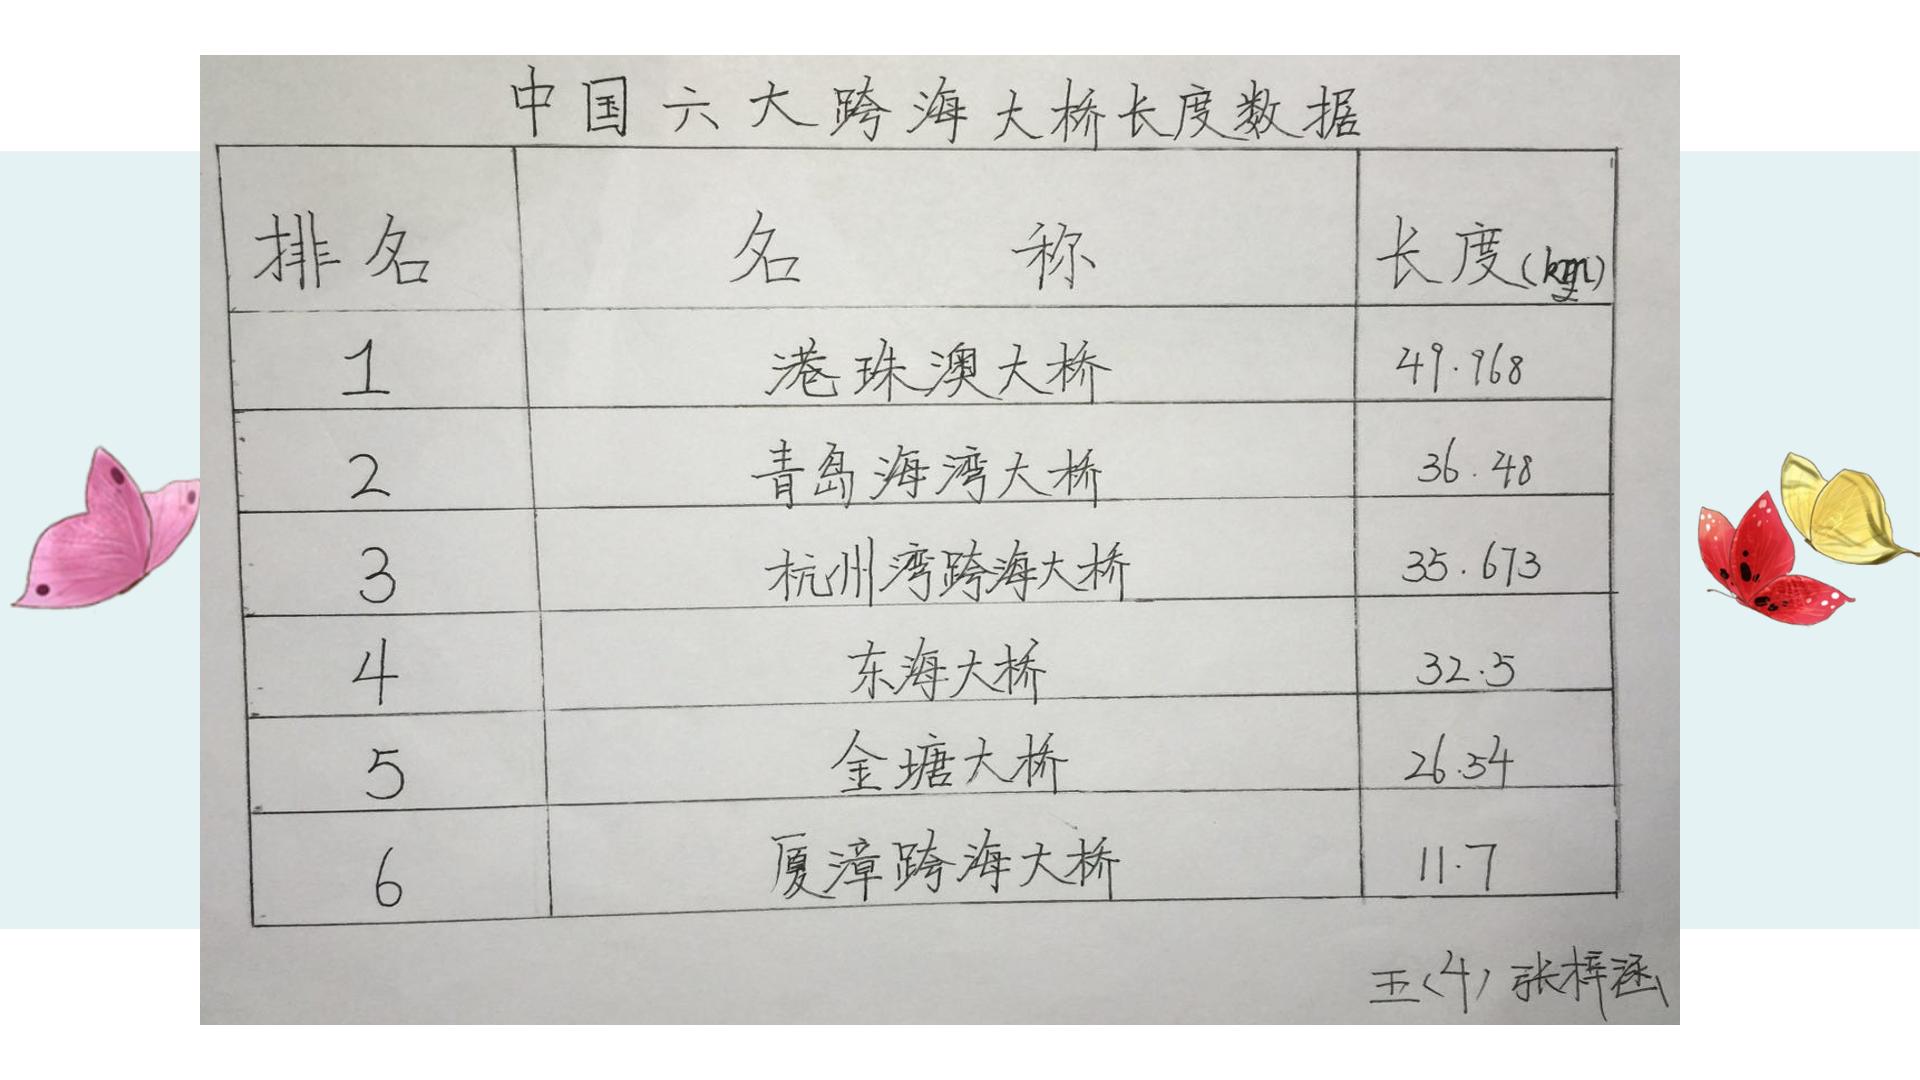 中国六大跨海大桥长度数据
排名 名称 长度(km)
1 港珠澳大桥 49.968
2 青岛海湾大桥 36.48
3 杭州湾跨海大桥 35.673
4 东海大桥 32.5
5 金塘大桥 26.54
6 厦漳跨海大桥 11.7
五(4) 张梓涵